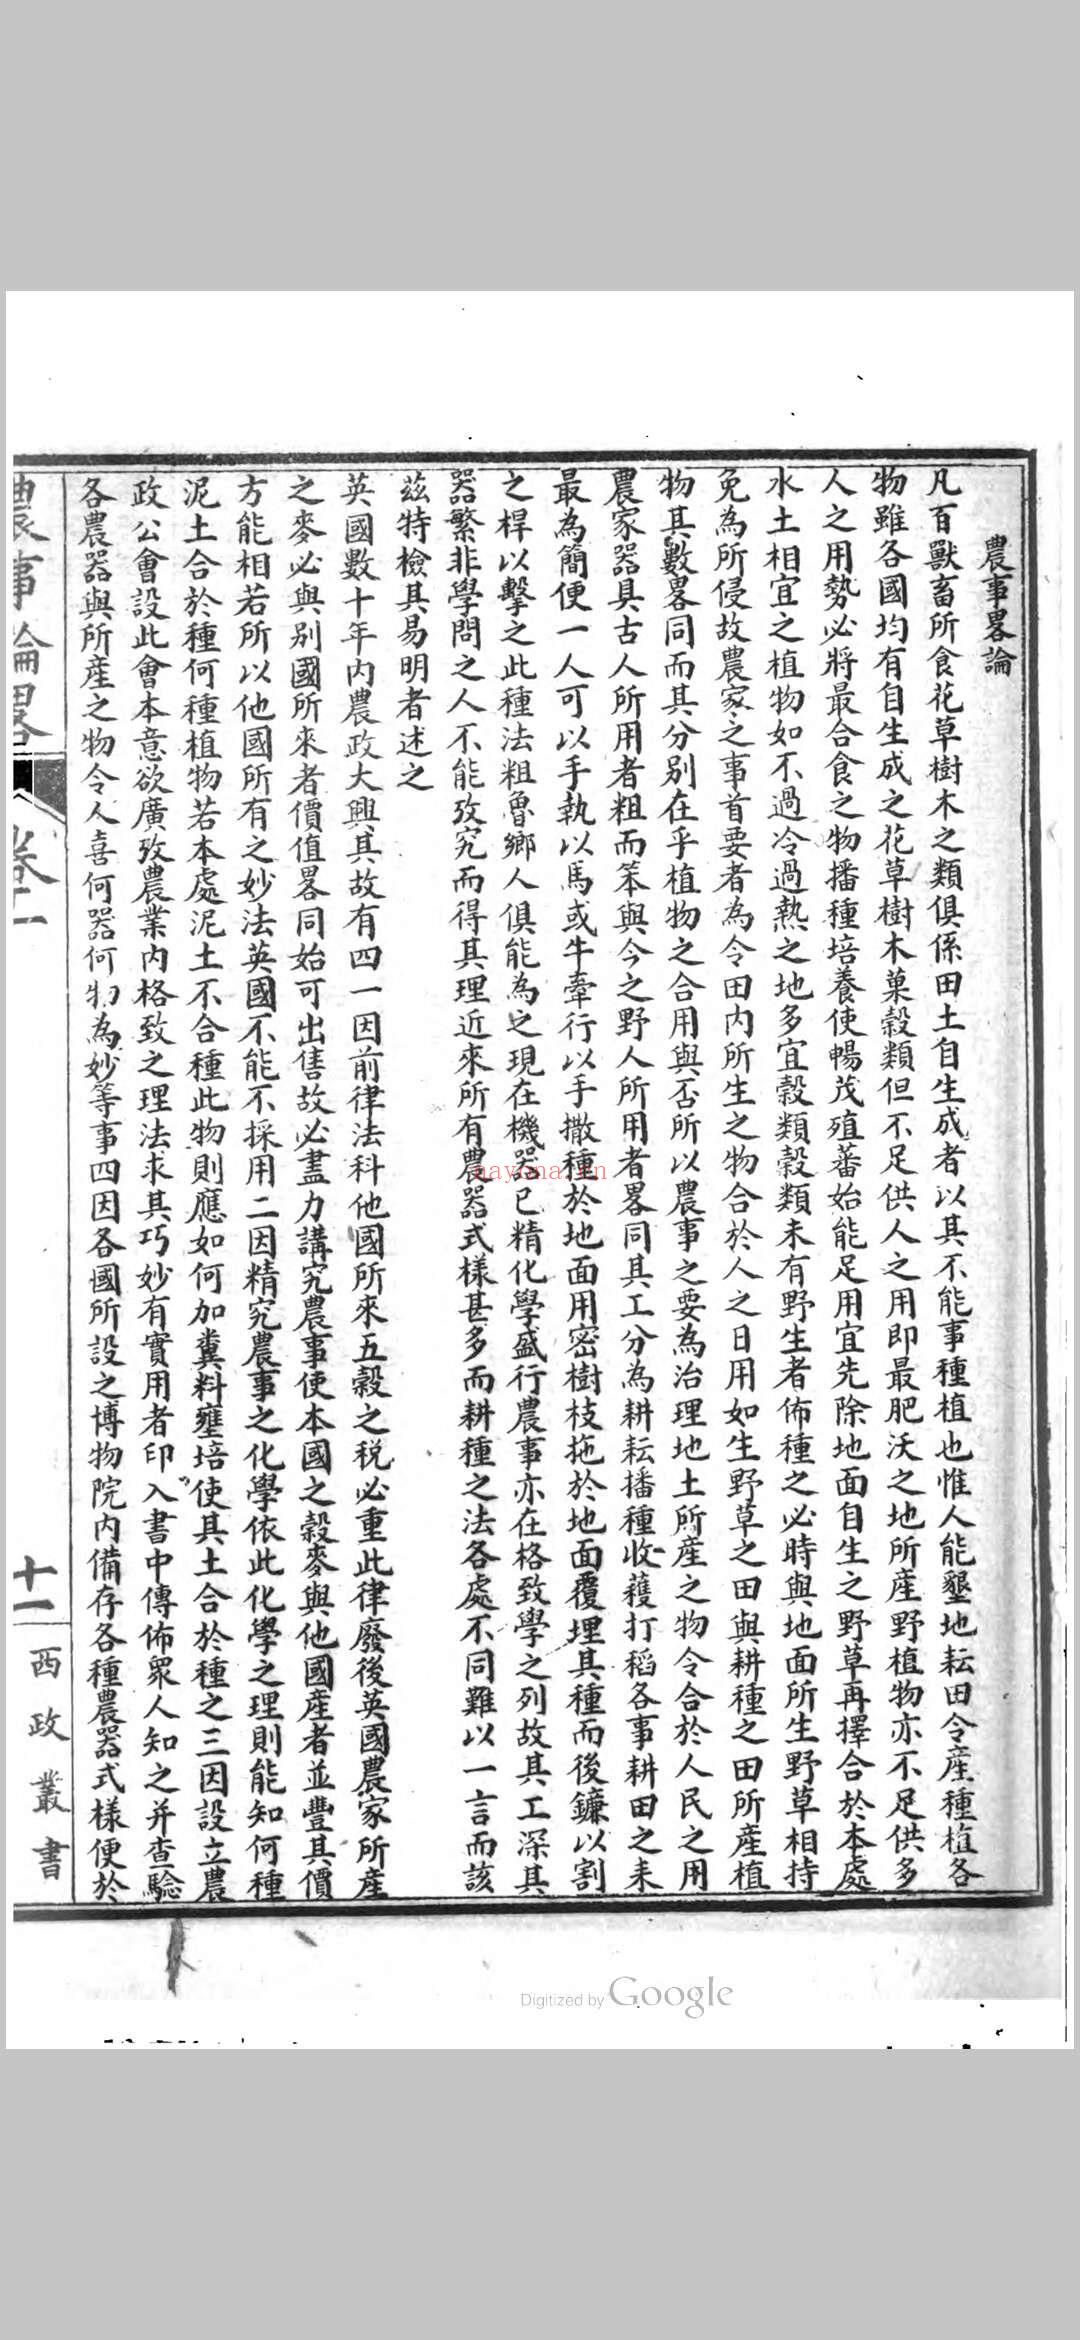 農事畧論
凡百獸畜所食花草樹木之類俱係田土自生成者以其不能事種植也惟人能墾地耘田令產種植各
物雖各國均有自生成之花草樹木菓穀類但不足供人之用即最肥沃之地所產野植物亦不足供多
人之用勢必將最合食之物播種培養使暢茂殖蕃始能足用宜先除地面自生之野草再擇合於本處
水土相宜之植物如不過冷過熱之地多宜穀類穀類未有野生者佈種之必時與地面所生野草相持
免為所侵故農家之事首要者為令田內所生之物合於人之日用如生野草之田與耕種之田所產植
物其數畧同而其分別在乎植物之合用與否所以農事之要為治理地土所產之物令合於人民之用
農家器具古人所用者粗而笨與今之野人所用者畧同其工分為耕耘播種收穫打稻各事耕田之耒
最為簡便一人可以手執以馬或牛牽行以手撒種於地面用密樹枝拖於地面覆埋其種而後鐮以割
之桿以擊之此種法粗魯鄉人俱能為之現在機器已精化學盛行農事亦在格致學之列故其工深其
器繁非學問之人不能攷究而得其理近來所有農器式樣甚多而耕種之法各處不同難以一言而該
茲特檢其易明者述之
英國數十年內農政大興其故有四一因前律法科他國所來五穀之税必重此律廢後英國農家所產
之麥必與別國所來者價值畧同始可出售故必盡力講究農事使本國之穀麥與他國產者並豐其價
方能相若所以他國所有之妙法英國不能不採用二因精究農事之化學依此化學之理則能知何種
泥土合於種何種植物若本處泥土不合種此物則應如何加糞料壅培使其土合於種之三因設立農
政公會設此會本意欲廣攷農業內格致之理法求其巧妙有實用者印入書中傳佈眾人知之并查驗
各農器與所產之物令人喜何器何物為妙等事四因各國所設之博物院內備存各種農器式樣便於
農事論畧
卷十一
十一
西政叢書
nayona.cn
Digitized by Google